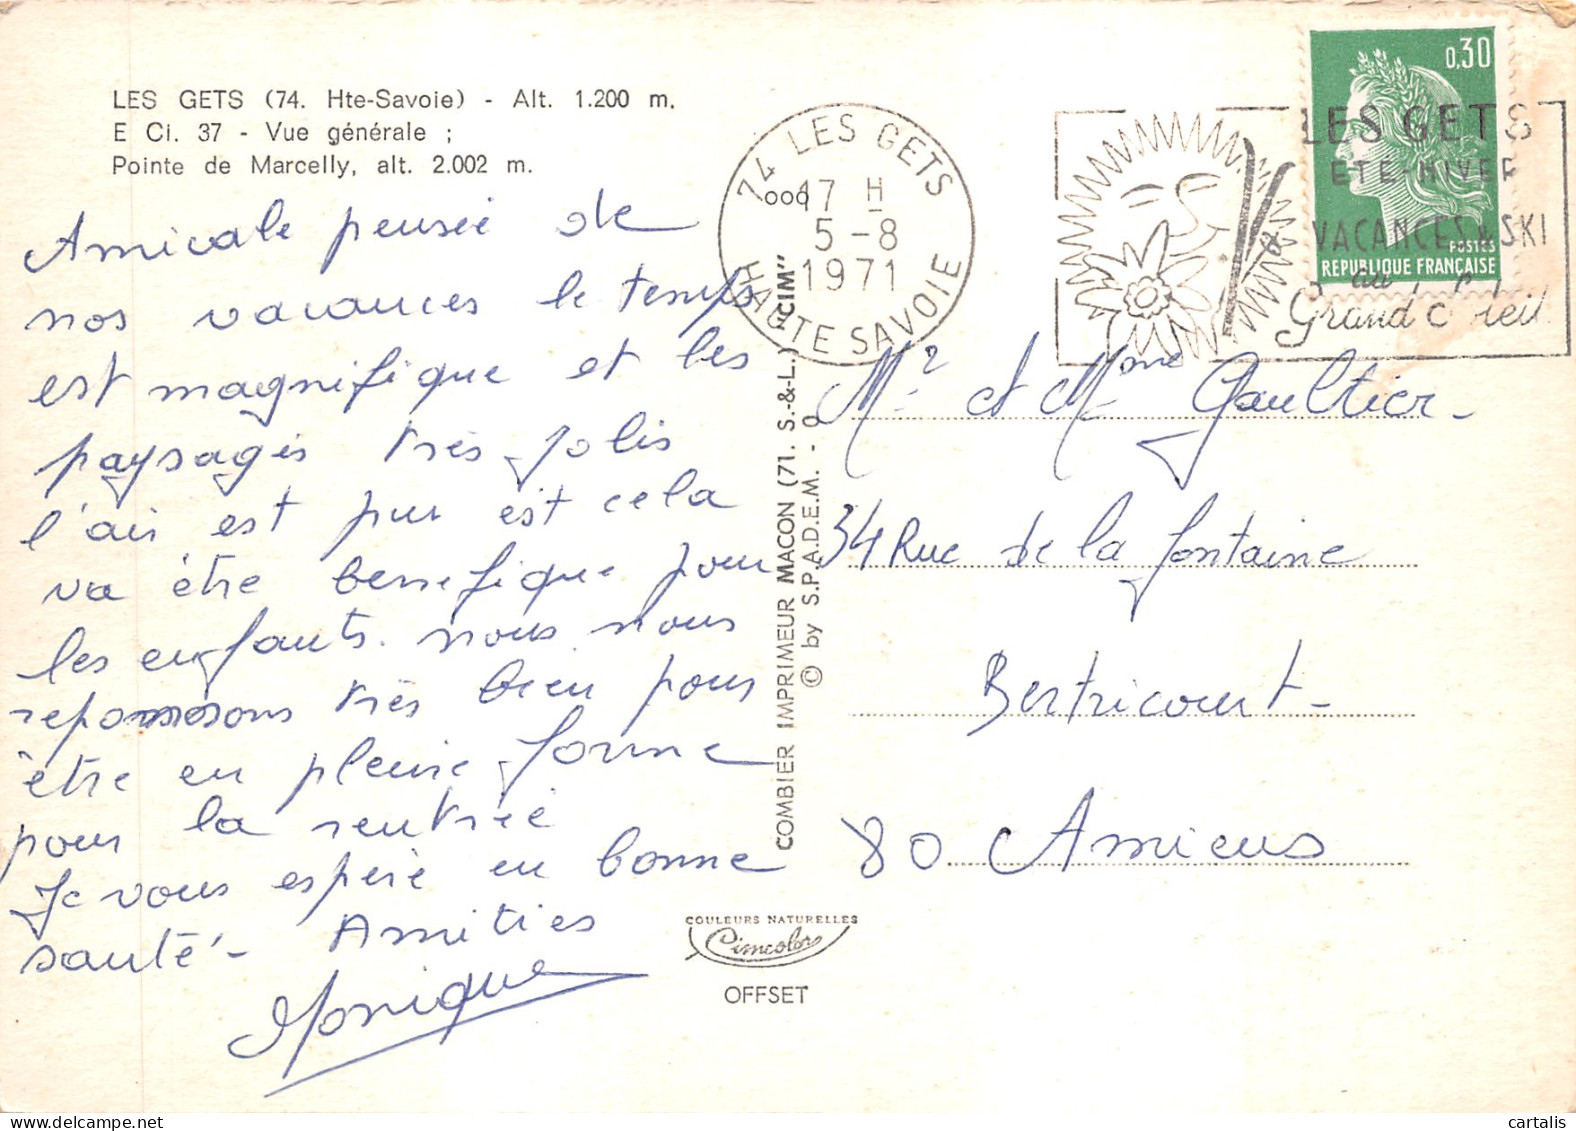 LES GETS (74. Hte-Savoie) - Alt. 1.200 m.
E Ci. 37 - Vue générale ;
Pointe de Marcelly, alt. 2.002 m.
Amicale pensée de
nos vacances le temps
est magnifique et les
paysages très jolis
l'air est pur est cela
va être benefique pour
les enfants. nous nous
reposons très bien pour
être en pleine forme
pour la rentrée
Je vous espère en bonne
santé - Amitiés
Monique
74 LES GETS
17 H
5 -8
1971
HAUTE SAVOIE
LES GETS
ETE-HIVER
VACANCES & SKI
au
Grand Soleil
0,30
POSTES
REPUBLIQUE FRANÇAISE
COMBIER IMPRIMEUR MACON (71. S.-&-L.) "CIM"
© by S.P.A.D.E.M. -
Mr et Mme Gaultier -
34 Rue de la fontaine
Bertricourt -
80 Amiens
COULEURS NATURELLES
Cimcolor
OFFSET
cartalis